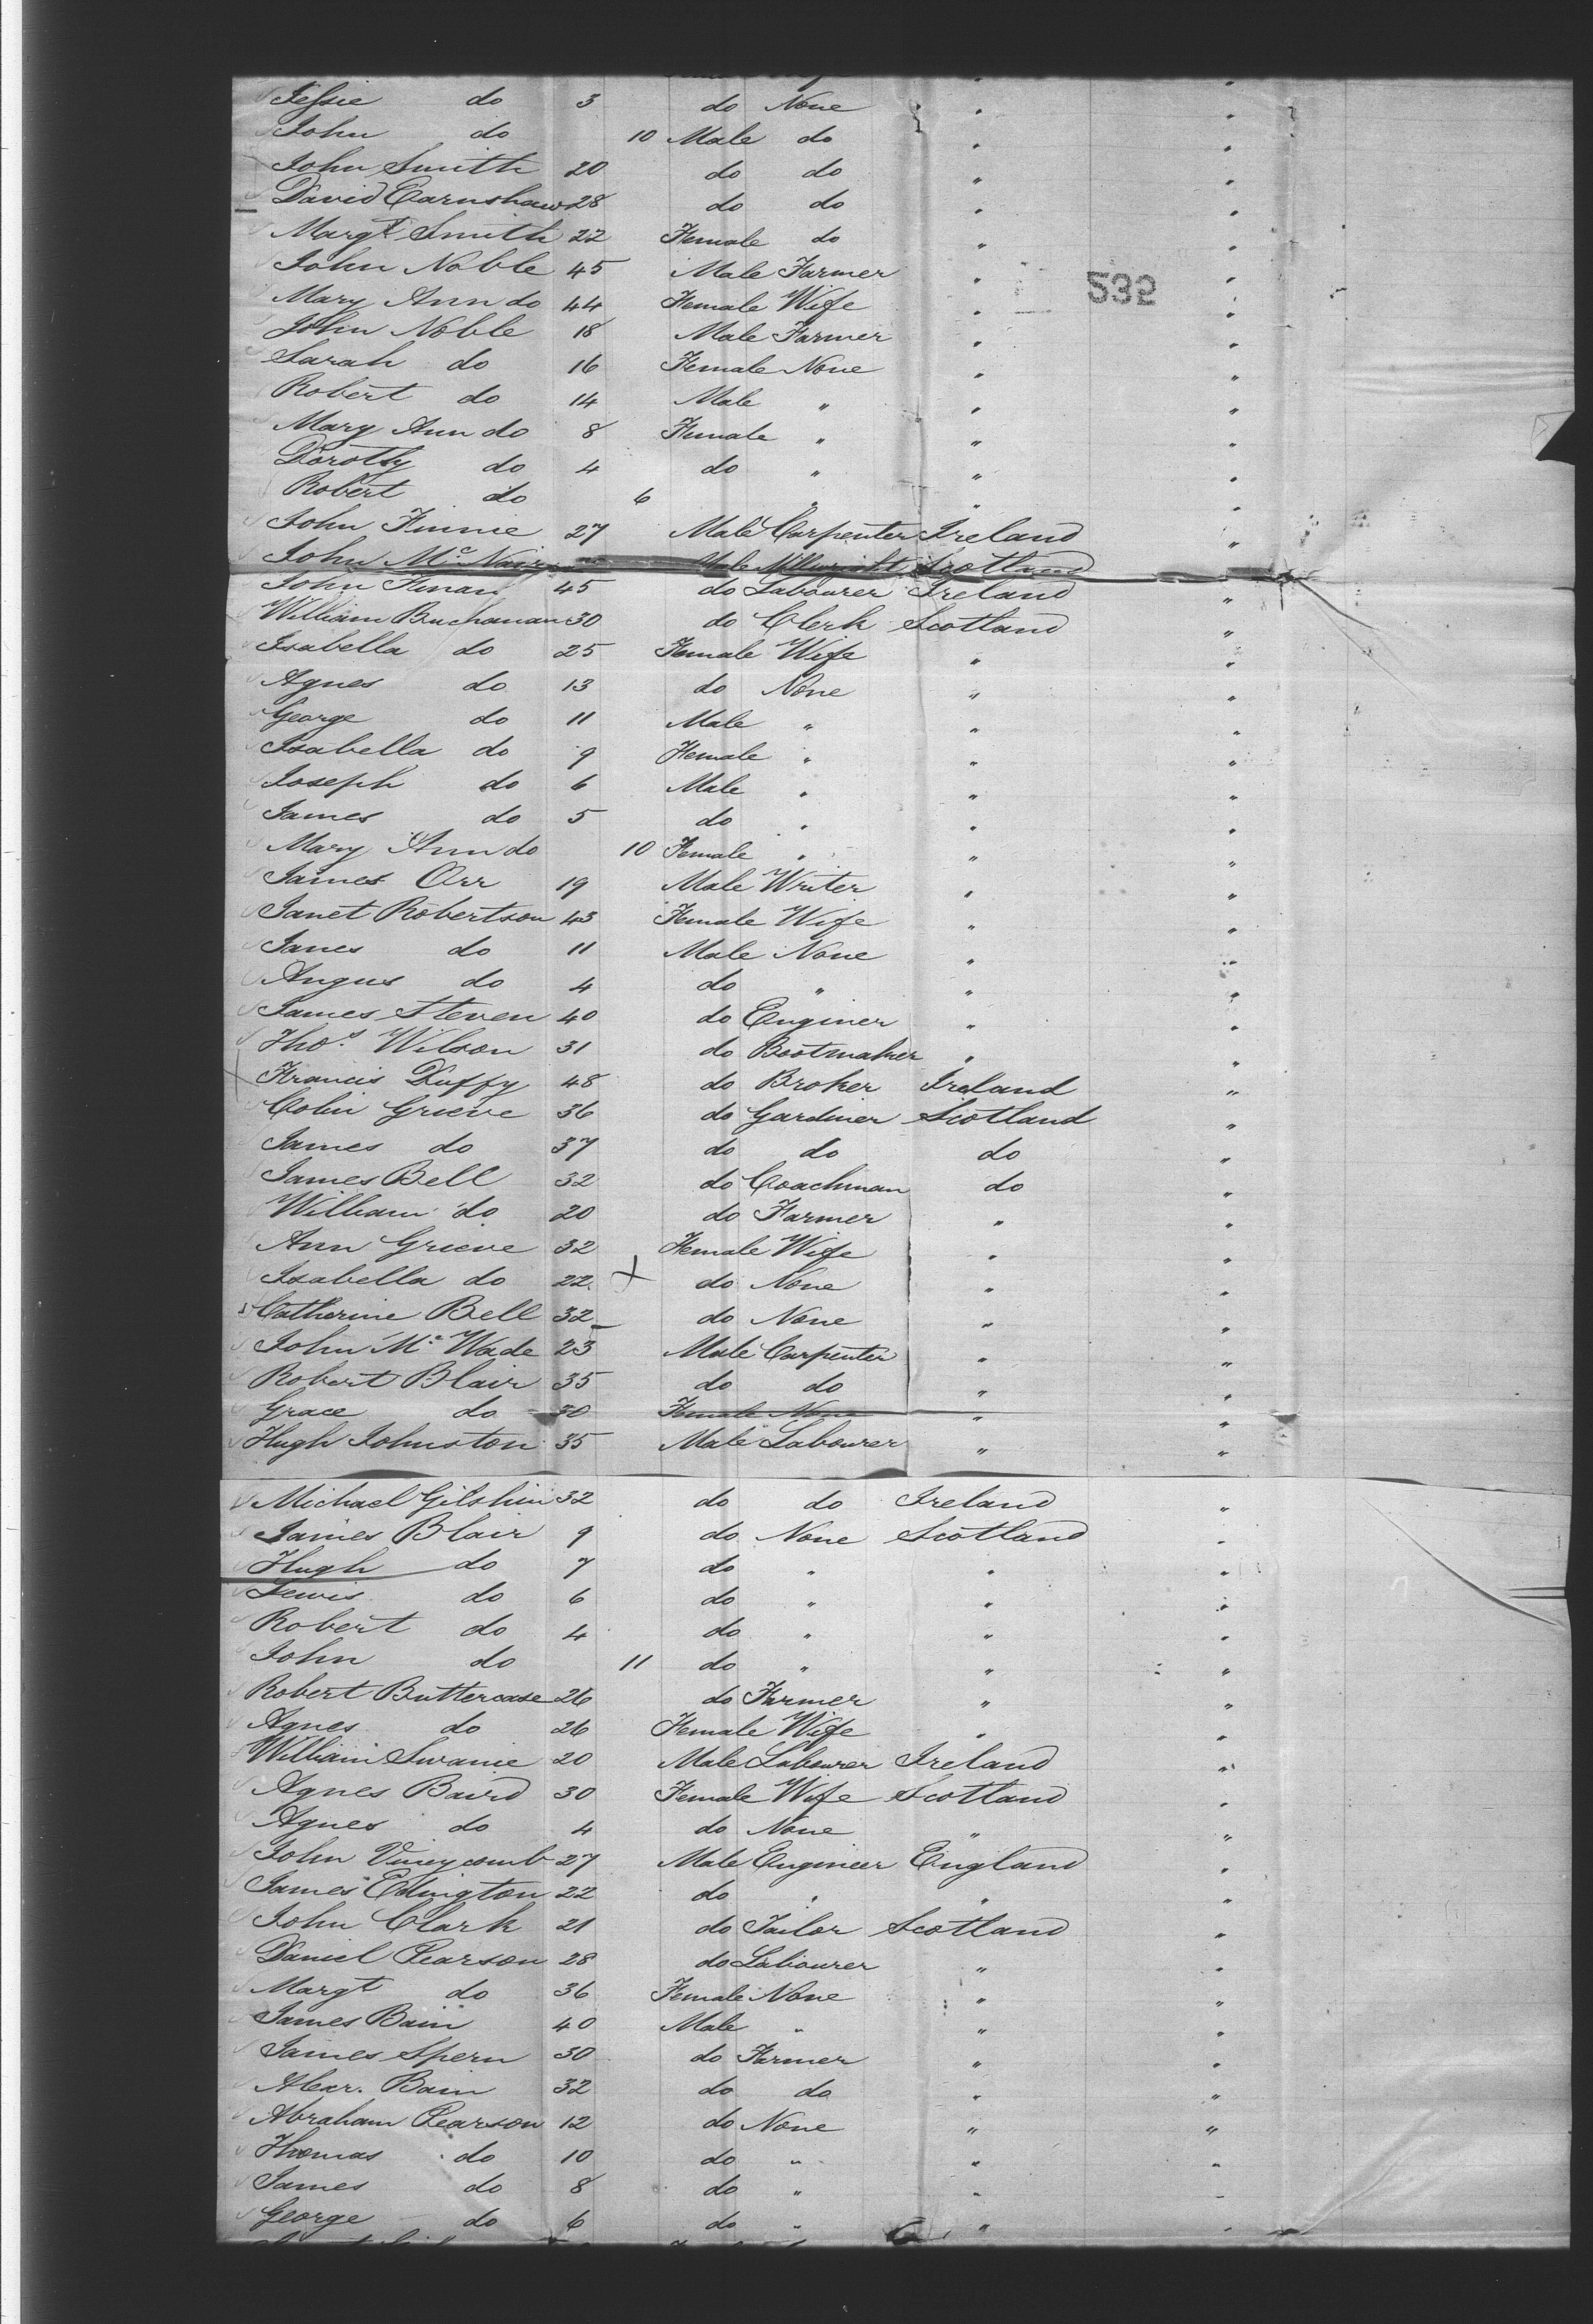 Jessie do 3 do None " "
John do 10 Male do " "
John Smith 20 do do " "
David Carnshaw 28 do do " "
Margt Smith 22 Female do " "
John Noble 45 Male Farmer " "
532
Mary Ann do 44 Female Wife " "
John Noble 18 Male Farmer " "
Sarah do 16 Female None " "
Robert do 14 Male " " "
Mary Ann do 8 Female " " "
Dorothy do 4 do " " "
Robert do 6 " " "
John Finnie 27 Male Carpenter Ireland "
John McNair Male Millwright Scotland
John Finan 45 do Labourer Ireland "
William Buchanan 30 do Clerk Scotland "
Isabella do 25 Female Wife " "
Agnes do 13 do None " "
George do 11 Male " " "
Isabella do 9 Female " " "
Joseph do 6 Male " " "
James do 5 do " " "
Mary Ann do 10 Female " " "
James Orr 19 Male Writer " "
Janet Robertson 43 Female Wife " "
Janes do 11 Male None " "
Angus do 4 do " " "
James Steven 40 do Enginer " "
Thos. Wilson 31 do Bootmaker " "
Francis Duffy 48 do Broker Ireland "
Colin Grieve 36 do Gardiner Scotland "
James do 37 do do do "
James Bell 32 do Coachman do "
William do 20 do Farmer " "
Ann Grieve 32 Female Wife " "
Isabella do 22 + do None " "
Catherine Bell 32 do None " "
John Mc Wade 23 Male Carpenter " "
Robert Blair 35 do do " "
Grace do 30 Female None " "
Hugh Johnston 35 Male Labourer " "
Michael Gilshin 32 do do Ireland "
James Blair 9 do None Scotland "
Hugh do 7 do " " "
Lewis do 6 do " " "
Robert do 4 do " " "
John do 11 do " " "
Robert Buttercase 26 do Farmer " "
Agnes do 26 Female Wife " "
William Swanie 20 Male Labourer Ireland "
Agnes Baird 30 Female Wife Scotland "
Agnes do 4 do None " "
John Vineycomb 27 Male Engineer England "
James Edington 22 do " " "
John Clark 21 do Tailor Scotland "
Daniel Pearson 28 do Labourer " "
Margt do 36 Female None " "
James Bain 40 Male " " "
James Spern 30 do Farmer " "
Alexr. Bain 32 do do " "
Abraham Pearson 12 do None " "
Thomas do 10 do " " "
James do 8 do " " "
George do 6 do " " "